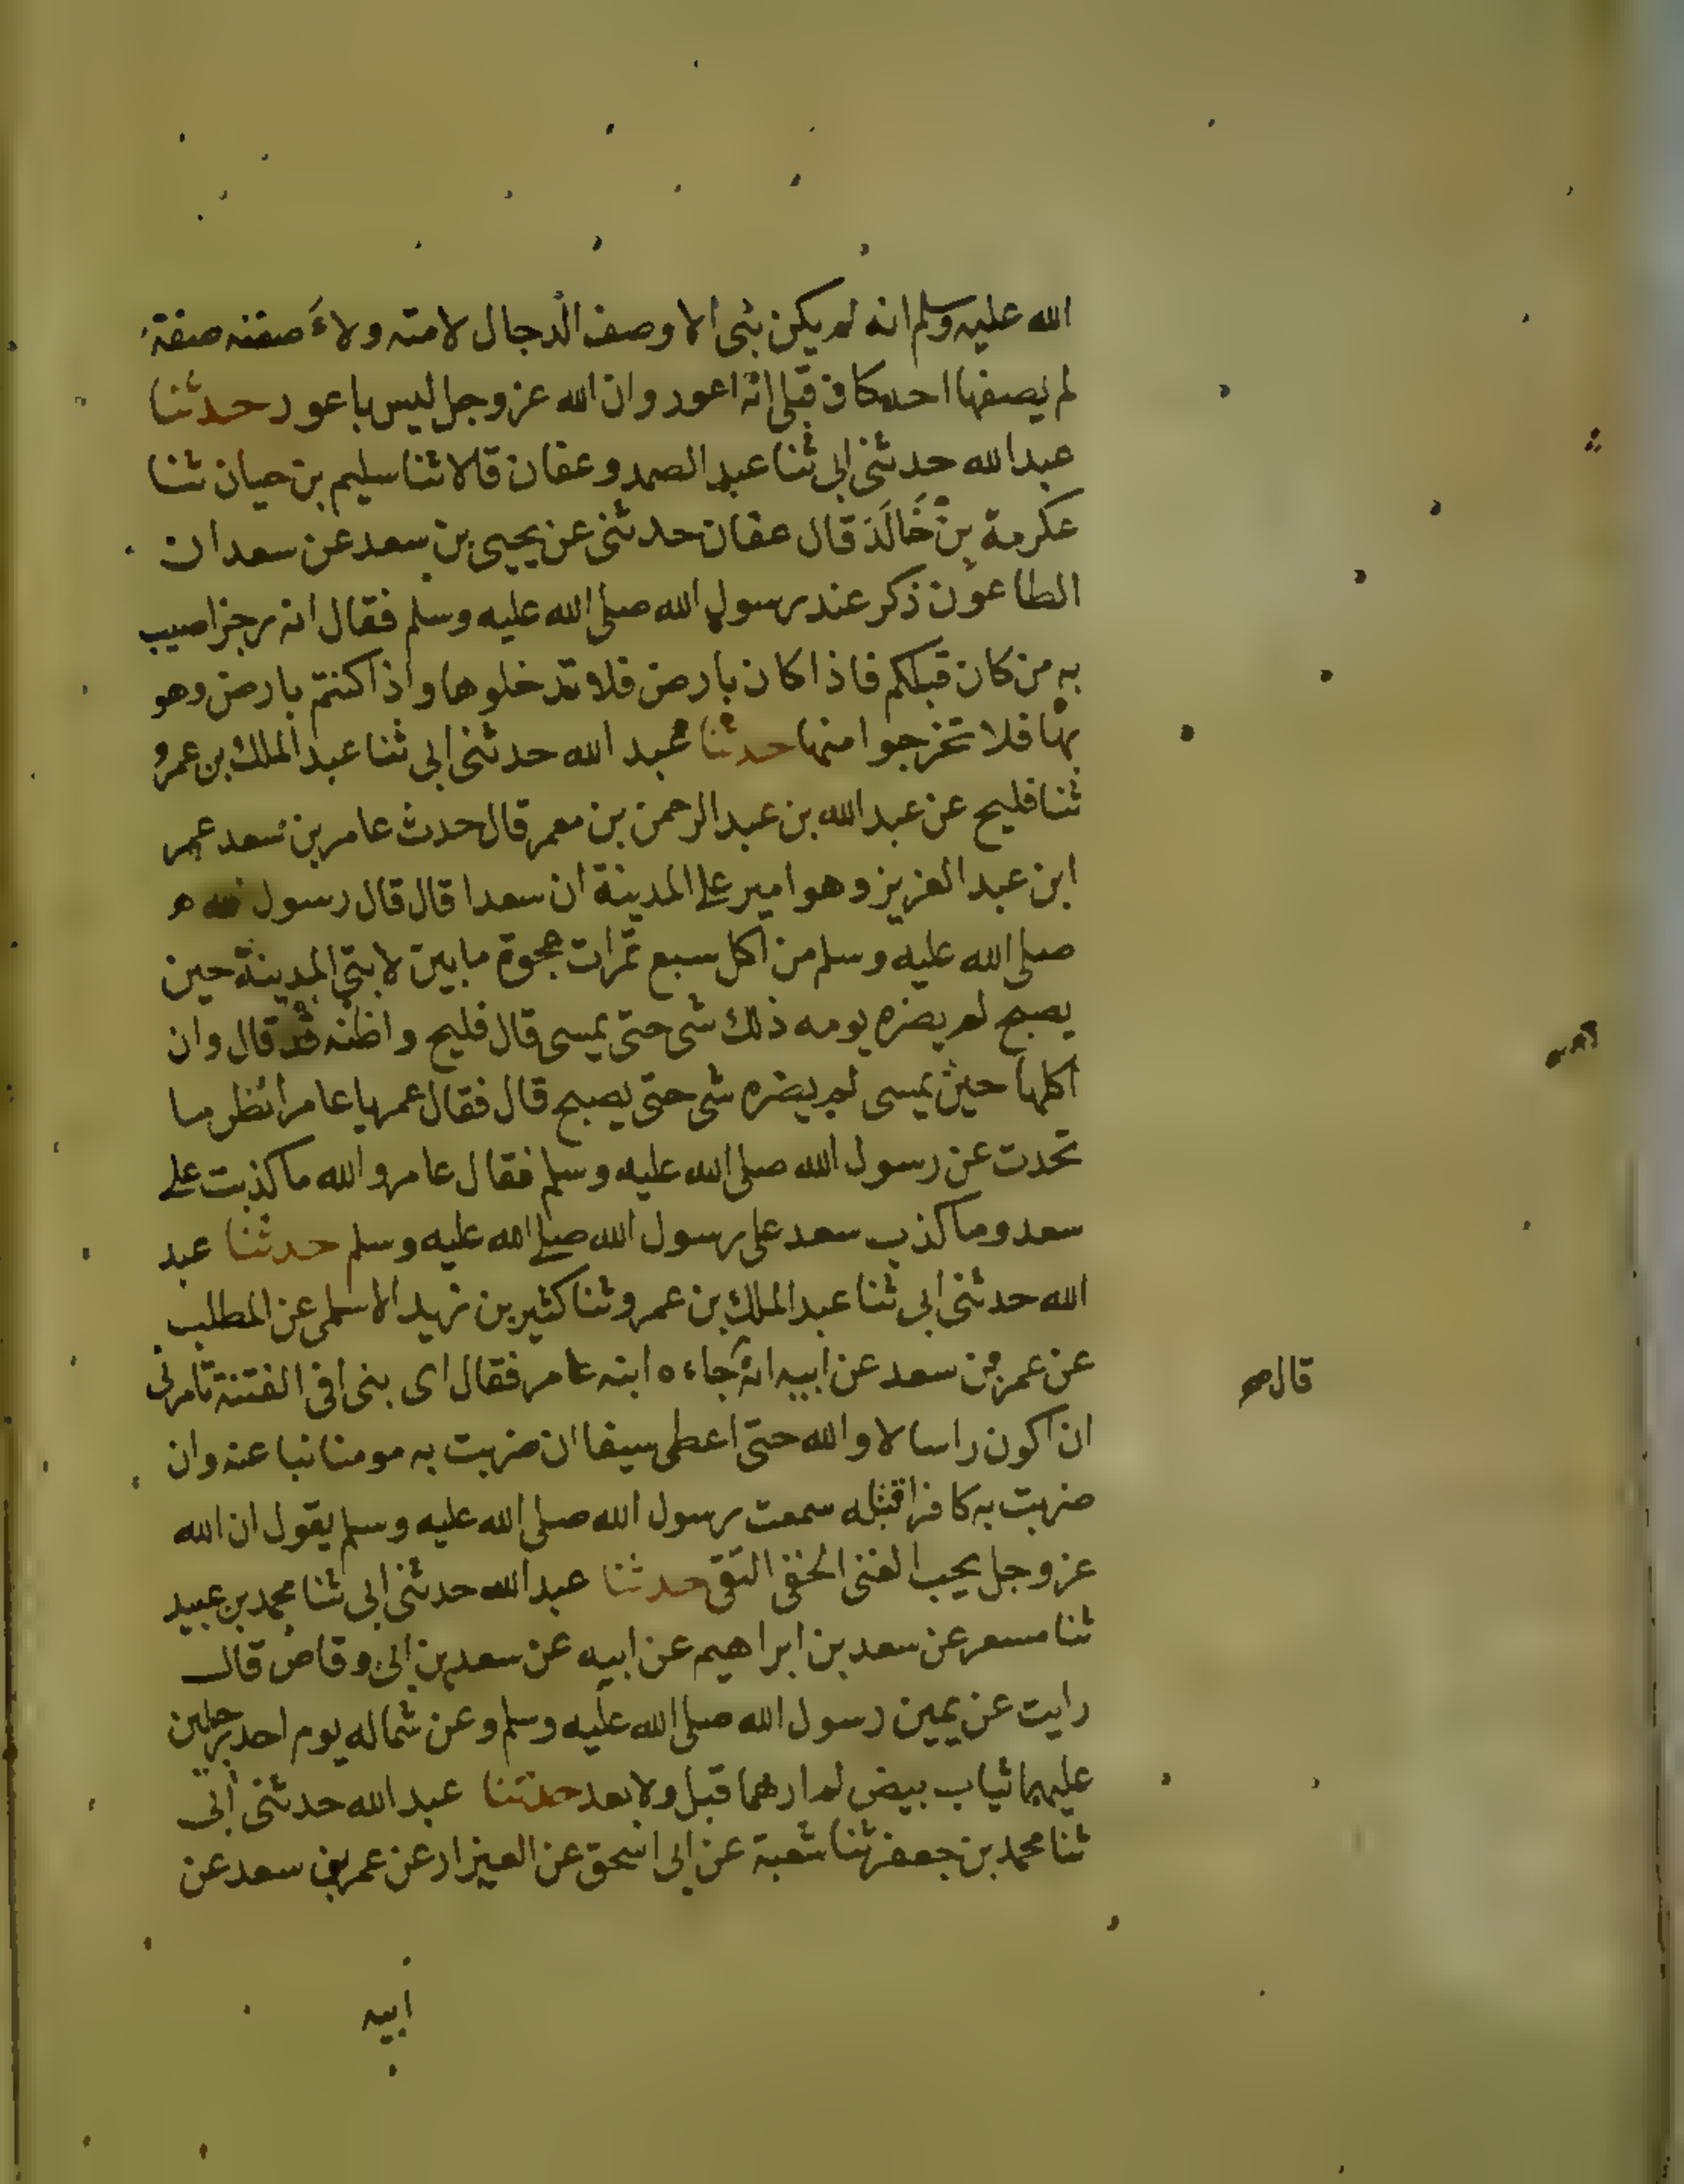 الله عليه وسلم انه لم يكن نبى الا وصف الدجال لامته ولاصفنه صفة
لم يصفها احد كان قبلى انه اعور وان الله عز وجل ليس باعور حدثنا
عبد الله حدثنى ابى ثنا عبد الصمد وعفان قالا ثنا سليم بن حيان ثنا
عكرمة بن خالد قال عفان حدثنى عن يحيى بن سعد عن سعد ان
الطاعون ذكر عند رسول الله صلى الله عليه وسلم فقال انه رجز اصيب
به من كان قبلكم فاذا كان بارض فلا تدخلوها واذا كنتم بارض وهو
بها فلا تخرجوا منها حدثنا عبد الله حدثنى ابى ثنا عبد الملك بن عمرو
ثنا فليح عن عبد الله بن عبد الرحمن بن معمر قال حدث عامر بن سعد عمر
ابن عبد العزيز وهو امير على المدينة ان سعدا قال قال رسول الله
صلى الله عليه وسلم من اكل سبع تمرات عجوة ما بين لابتى المدينة حين
يصبح لم يضره يومه ذلك شى حتى يمسى قال فليح واظنه قد قال وان
اكلها حين يمسى لم يضره شى حتى يصبح قال فقال عمر يا عامر انظر ما
تحدث عن رسول الله صلى الله عليه وسلم فقال عامر والله ما كذبت على
سعد وما كذب سعد على رسول الله صلى الله عليه وسلم حدثنا عبد
الله حدثنى ابى ثنا عبد الملك بن عمرو ثنا كثير بن زيد الاسلمى عن المطلب
عن عمر بن سعد عن ابيه انه جاءه ابنه عامر فقال اى بنى افى الفتنة تامرنى
قال
ان اكون راسا لا والله حتى اعطى سيفا ان ضربت به مومنا نبا عنه وان
ضربت به كافرا قتله سمعت رسول الله صلى الله عليه وسلم يقول ان الله
عز وجل يحب الغنى الخفى التقى حدثنا عبد الله حدثنى ابى ثنا محمد بن عبيد
ثنا مسعر عن سعد بن ابراهيم عن ابيه عن سعد بن ابى وقاص قال
رايت عن يمين رسول الله صلى الله عليه وسلم وعن شماله يوم احد رجلين
عليهما ثياب بيض لم ارهما قبل ولا بعد حدثنا عبد الله حدثنى ابى
ثنا محمد بن جعفر ثنا شعبة عن ابى اسحق عن العيزار عن عمر بن سعد عن
ابيه